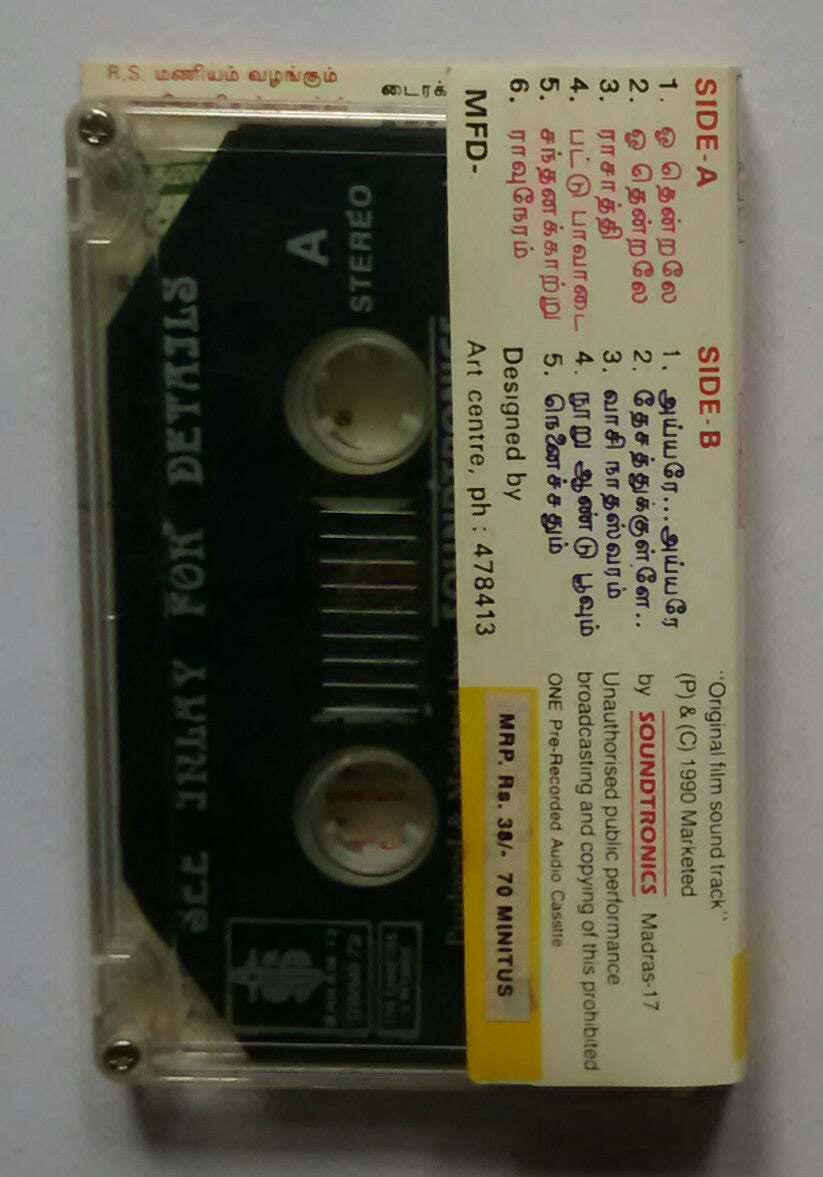 R.S. மணியம் வழங்கும்
டைரக்
SIDE-A
1. ஓ தென்றலே
2. ஓ தென்றலே
3. ராசாத்தி
4. பட்டு பாவாடை
5. சந்தனக்காற்று
6. ராவுநேரம்
MFD-
SIDE-B
1. அய்யரே...அய்யரே
2. தேசத்துக்குள்ளே..
3. வாசி நாதஸ்வரம்
4. நூறு ஆண்டு பூவும்
5. நெனைச்சதும்
Designed by
Art centre, ph : 478413
"Original film sound track"
(P) & (C) 1990 Marketed
by SOUNDTRONICS Madras-17
Unauthorised public performance
broadcasting and copying of this prohibited
ONE Pre-Recorded Audio Casstle
MRP. Rs. 38/- 70 MINITUS
A
STEREO
SEE INLAY FOR DETAILS